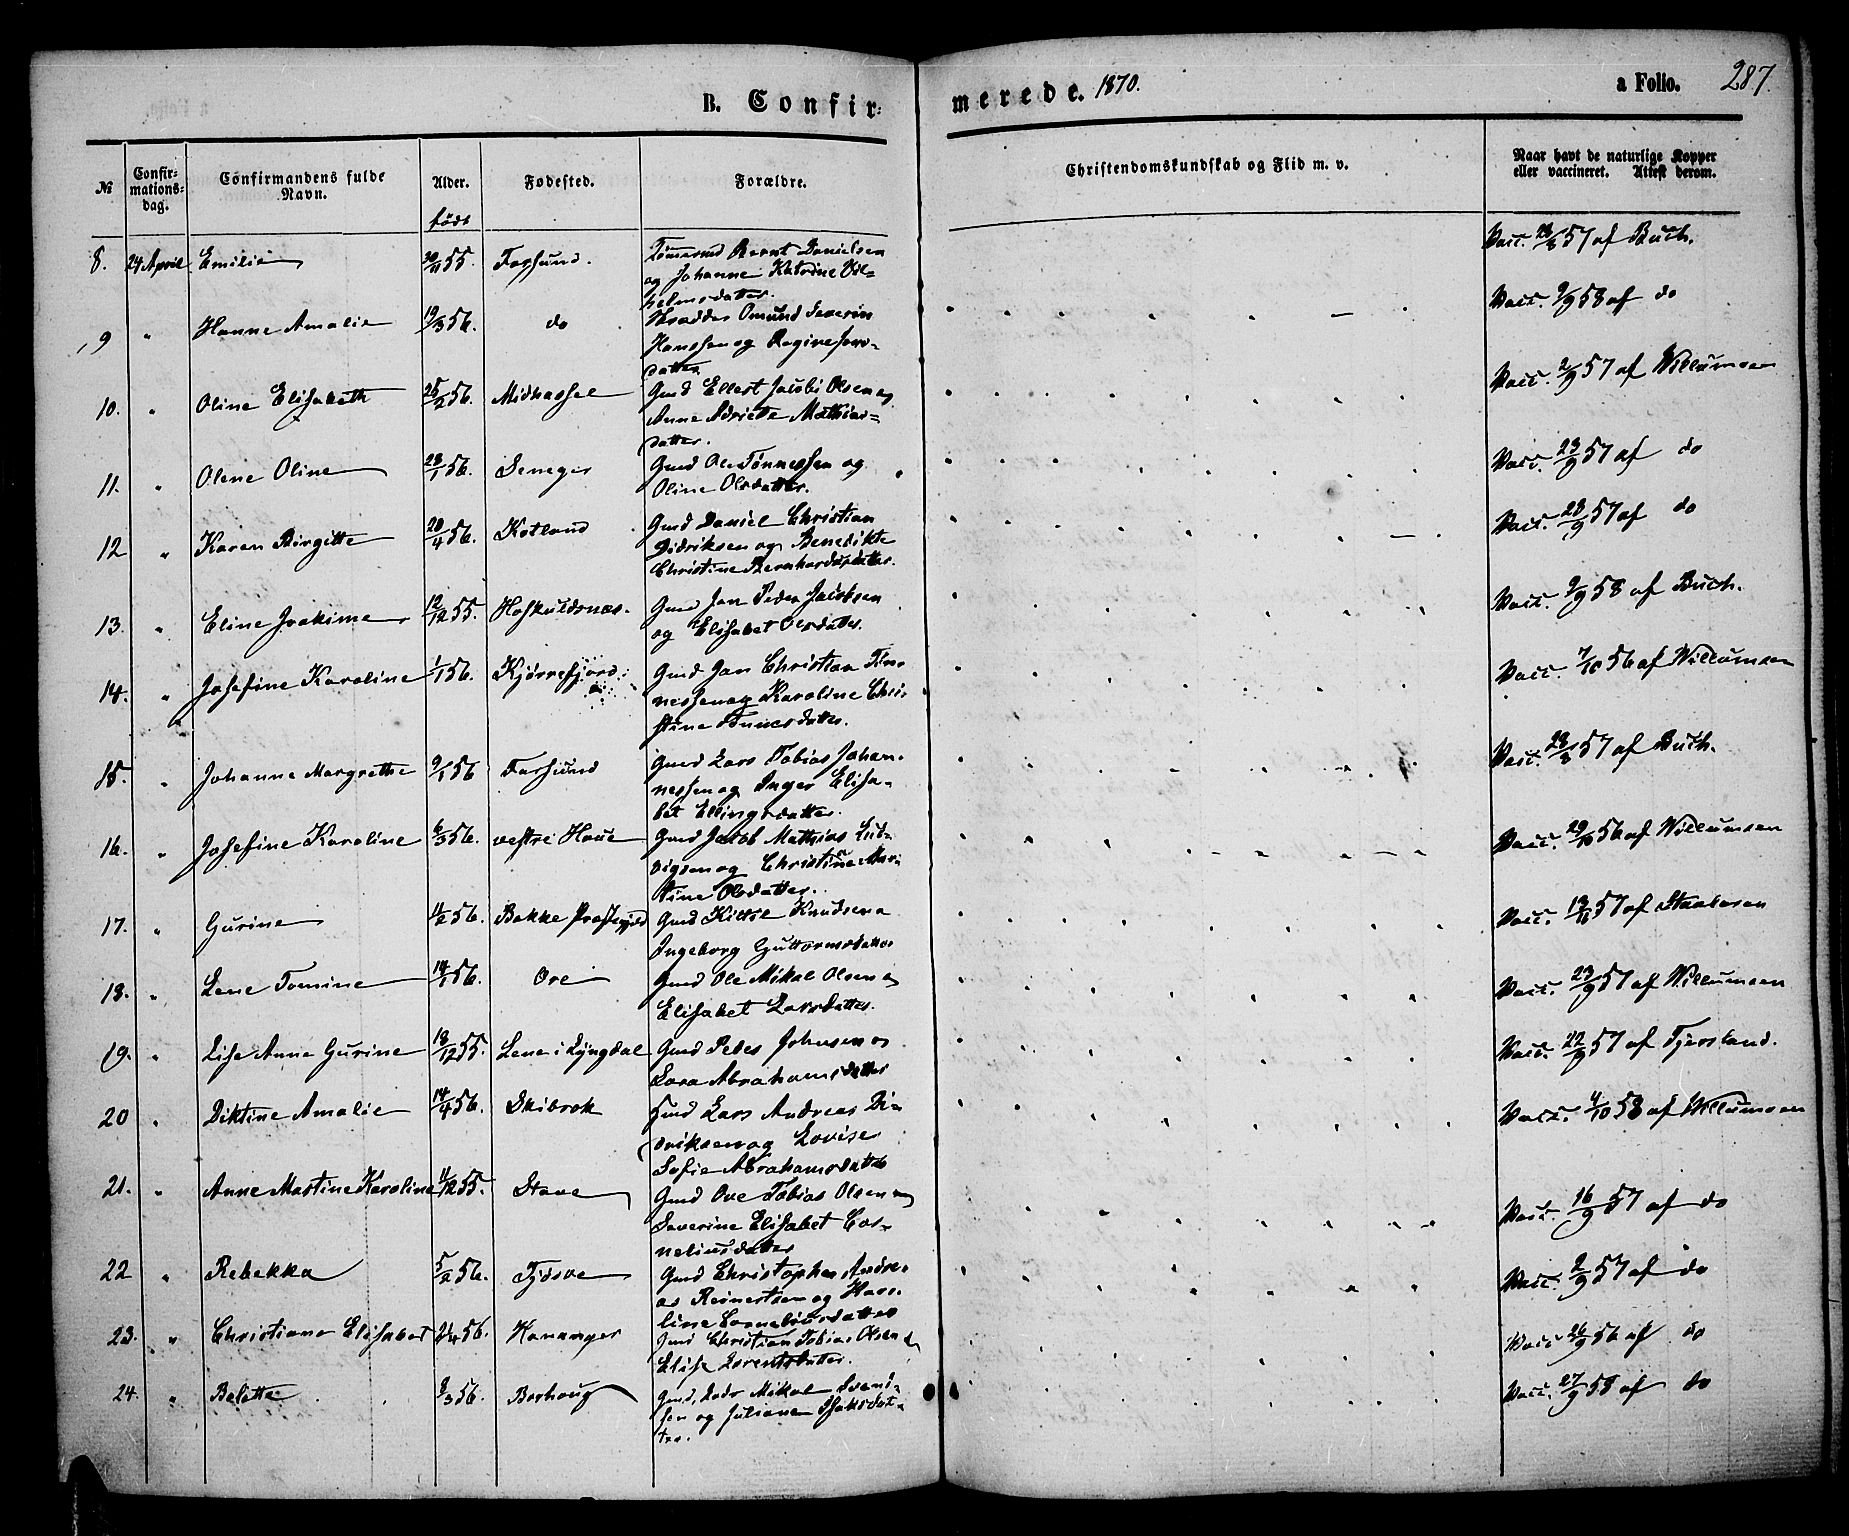 B. Confir=
merede. 1870.
a Folio. 287.
№ Confir=mations=dag. Confirmandens fulde Navn. Alder. Fødested. Forældre. Christendomskundskab og Flid m. v. Naar havt de naturlige Kopper eller vaccineret. Attest derom.
født
8. 24 April Emilie 30/11 55. Farsund. Tømmermd Bernt Danielsen Vacc. 28/8 57 af Buch.
og Johanne Katrine Vil=
helmsdatter.
9 " Hanne Amalie 19/3 56. do Skrædder Omund Severin Vacc. 9/9 58 af do
Hanssen og Regine
datter
10. " Oline Elisabeth 25/2 56. Midhassel Gmd Ellert Jacob Olsen og Vacc. 2/9 57 af Willumsen
Anne Mathias=
datter.
11. " Olene Oline 23/1 56. Seneger Gmd Ole Tønnessen og Vacc. 23/9 57 af do
Oline Olsdatter.
12 " Karen Birgitte 20/4 56. Kolland Gmd Daniel Christian Vacc. 28/9 57 af do
Didriksen og Benedikte
Christine Bernhardsdatter.
13. " Eline Joakime 12/12 55. Hoskuldsnæs. Gmd Jan Peder Jacobsen Vacc. 9/9 58 af Buch.
og Elisabet Olsdatter.
14. " Josefine Karoline 1/1 56. Kjørrefjord Gmd Jan Christian Tøn- Vacc. 7/10 56 af Willumsen
nessen og Karoline Chri-
stine Tønnesdatter.
15. " Johanne Margrethe 9/1 56 Farsund Gmd Lars Tobias Johan- Vacc. 28/8 57 af Buch.
nessen og Inger Elisa-
bet Ellingsdatter.
16. " Josefine Karoline 6/3 56. vestre Haue Gmd Jacob Mathias Lud- Vacc. 29/10 56 af Willumsen
vigsen og Christine Mar-
tine Olsdatter.
17. " Gurine 11/2 56. Bakke Præstegjeld Gmd Kittel Knudsen Vacc. 57 af Staalesen
Ingeborg Guttormsdatter
18. " Lene Tomine 14/1 56. Ore Gmd Ole Mikal Olsen og Vacc. 23/9 57 af Willumsen
Elisabet Larsdatter.
19. " Lise Anne Gurine 18/12 55. Lene i Lyngdal Gmd Peder Johnsen og Vacc. 22/9 57 af Tjersland.
Sara Abrahamsdatter
20 " Diktine Amalie 14/4 56. Skibrok Gmd Lars Andreas Di- Vacc. 4/10 58 af Willumsen
driksen og Lovise
Sofie Abrahamsdatter
21. " Anne Martine Karoline 11/12 55. Stave Gmd Ove Tobias Olsen og Vacc. 16/9 57 af do
Severine Elisabet Cor-
neliusdatter
22 " Rebekka 5/2 56. Tjdsve Gmd Christopher Andre- Vacc. 2/9 57 af do
as Reinertsen og Karo-
line Corneliusdatter
23. " Christiane Elisabet 24/4 56. Hananger Gmd Christian Tobias Olsen og Vacc. 26/9 56 af do
Elise Lorentsdatter.
24. " Belette 9/3 56. Borhoug Gmd, Mikal Svend- Vacc. 27/9 58 af do
sen og Juliane Isaksdat-
ter.